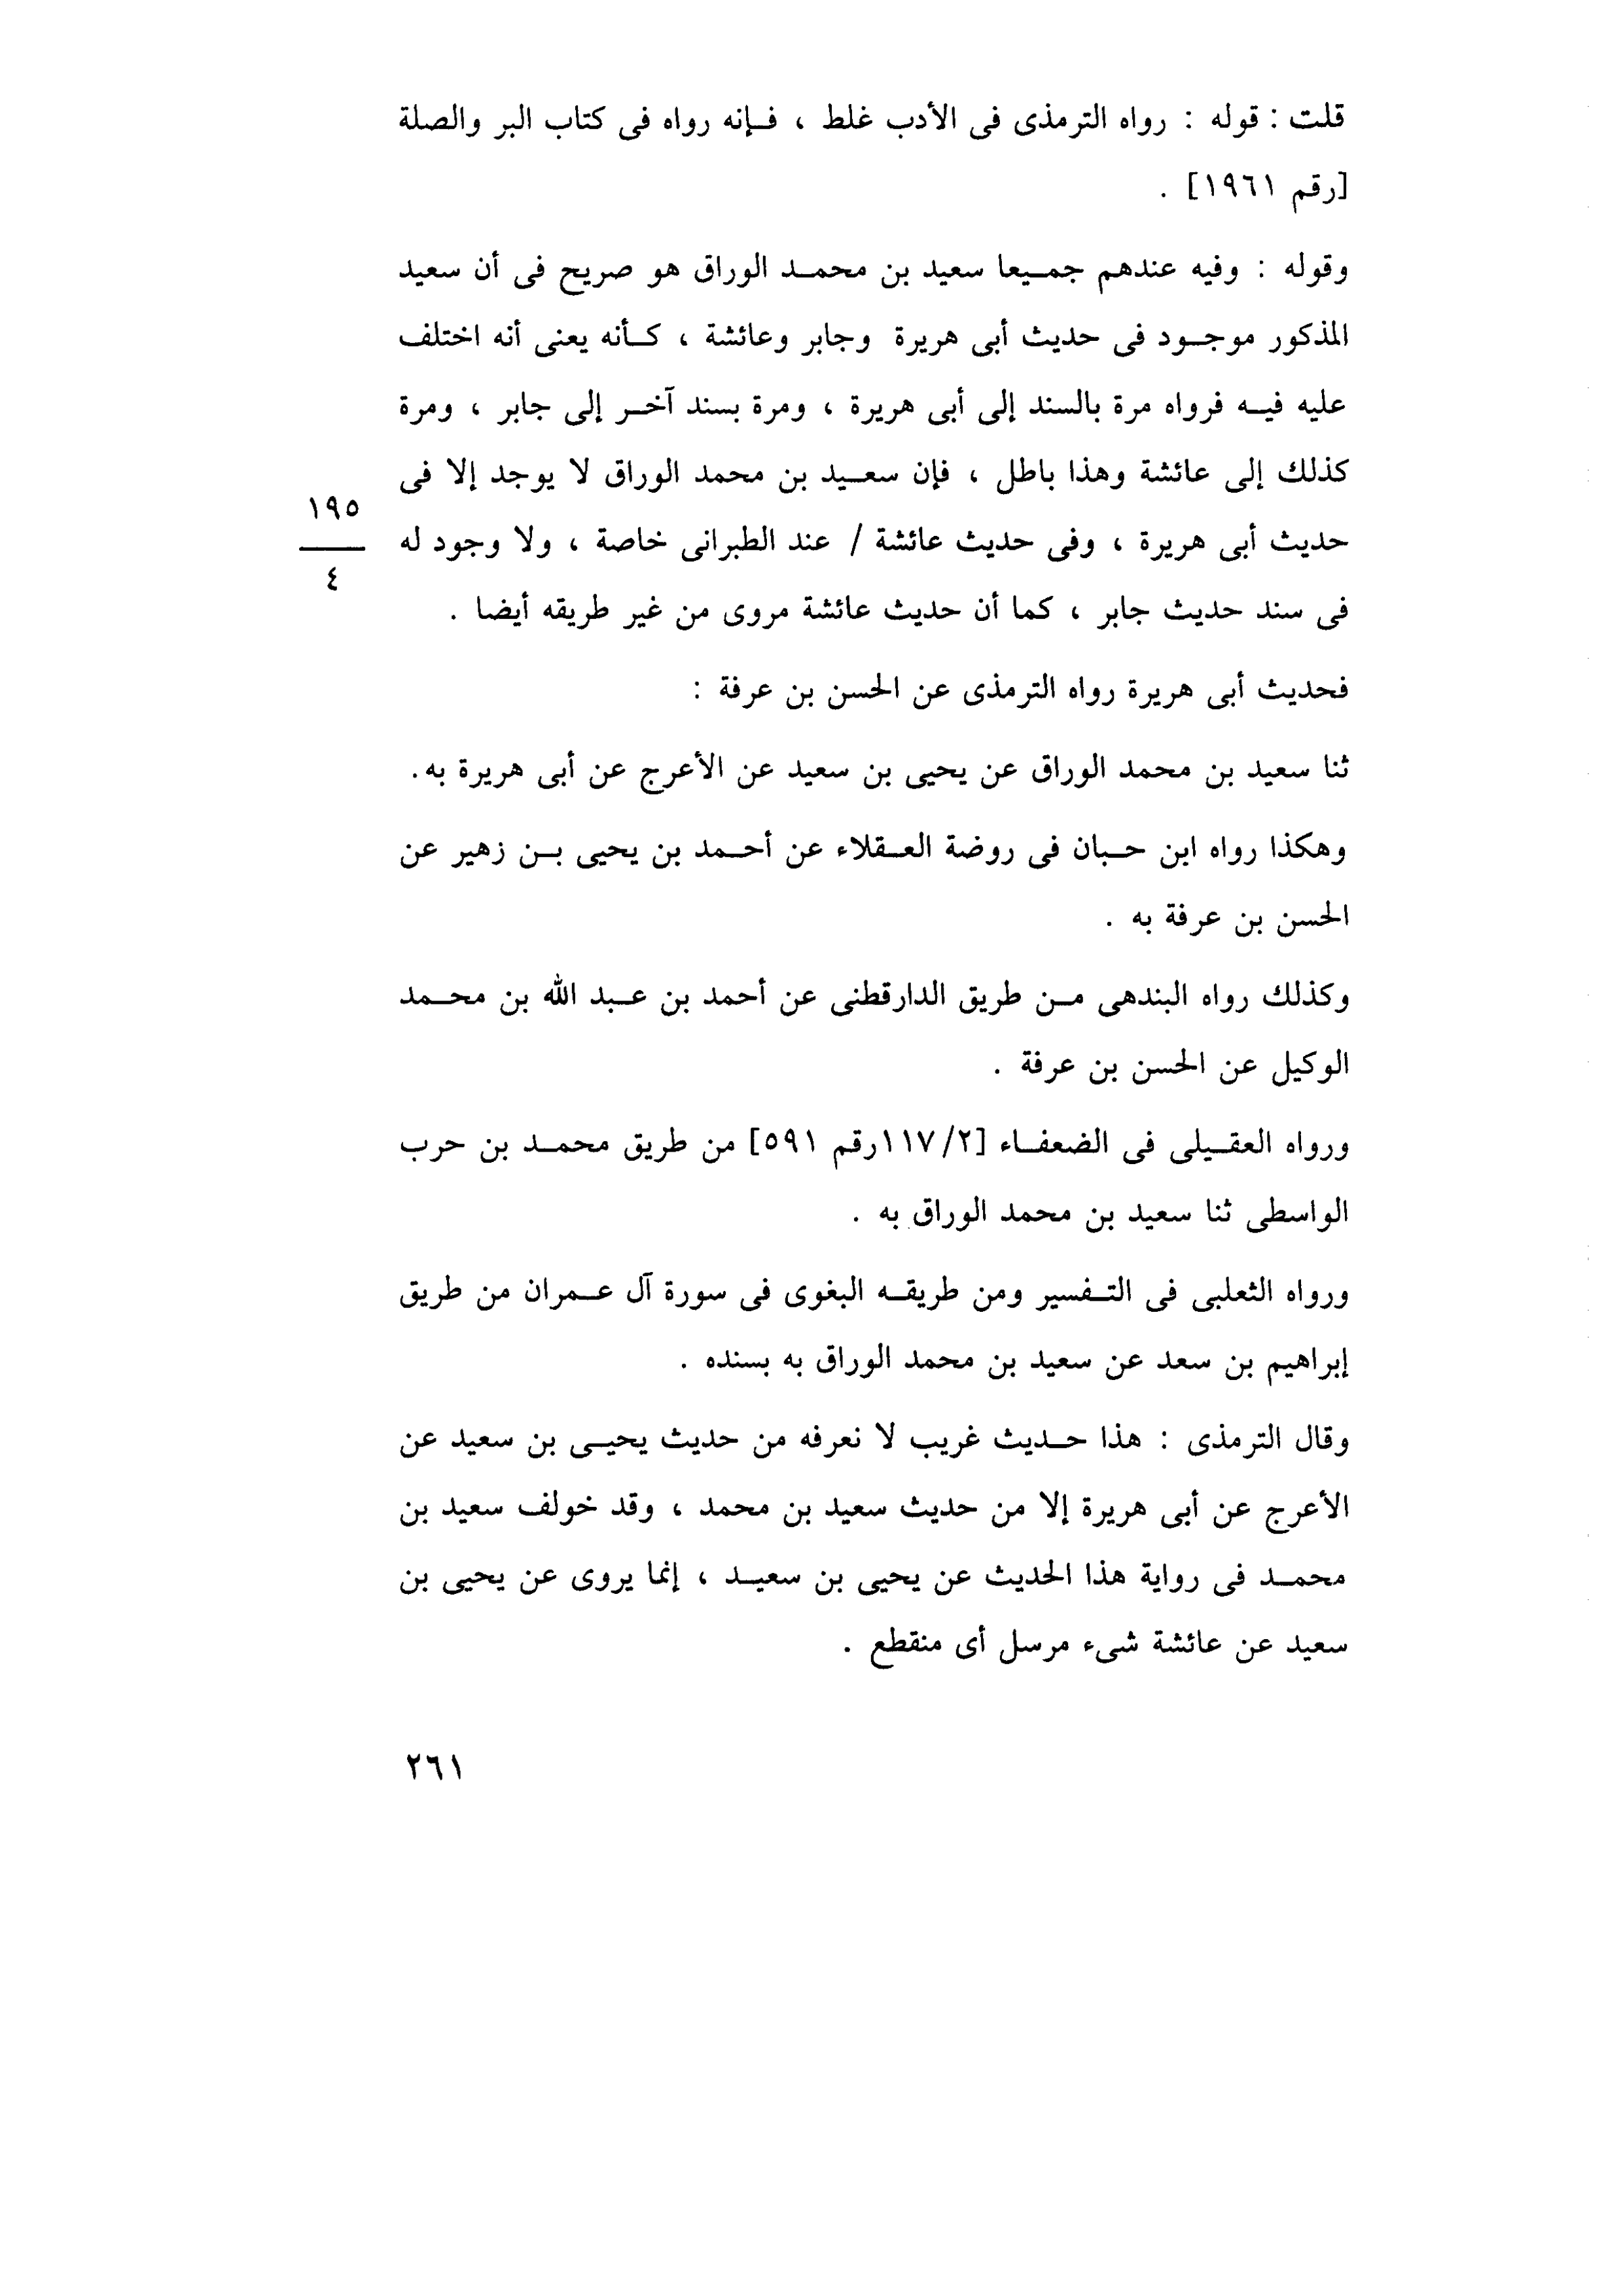 قلت : قوله : رواه الترمذى فى الأدب غلط ، فإنه رواه فى كتاب البر والصلة
[رقم ١٩٦١] .
وقوله : وفيه عندهم جميعا سعيد بن محمد الوراق هو صريح فى أن سعيد
المذكور موجود فى حديث أبى هريرة وجابر وعائشة ، كأنه يعنى أنه اختلف
عليه فيه فرواه مرة بالسند إلى أبى هريرة ، ومرة بسند آخر إلى جابر ، ومرة
كذلك إلى عائشة وهذا باطل ، فإن سعيد بن محمد الوراق لا يوجد إلا فى
حديث أبى هريرة ، وفى حديث عائشة / عند الطبرانى خاصة ، ولا وجود له
١٩٥
٤
فى سند حديث جابر ، كما أن حديث عائشة مروى من غير طريقه أيضا .
فحديث أبى هريرة رواه الترمذى عن الحسن بن عرفة :
ثنا سعيد بن محمد الوراق عن يحيى بن سعيد عن الأعرج عن أبى هريرة به.
وهكذا رواه ابن حبان فى روضة العقلاء عن أحمد بن يحيى بن زهير عن
الحسن بن عرفة به .
وكذلك رواه البندهى من طريق الدارقطنى عن أحمد بن عبد الله بن محمد
الوكيل عن الحسن بن عرفة .
ورواه العقيلى فى الضعفاء [٢/ ١١٧رقم ٥٩١] من طريق محمد بن حرب
الواسطى ثنا سعيد بن محمد الوراق به .
ورواه الثعلبى فى التفسير ومن طريقه البغوى فى سورة آل عمران من طريق
إبراهيم بن سعد عن سعيد بن محمد الوراق به بسنده .
وقال الترمذى : هذا حديث غريب لا نعرفه من حديث يحيى بن سعيد عن
الأعرج عن أبى هريرة إلا من حديث سعيد بن محمد ، وقد خولف سعيد بن
محمد فى رواية هذا الحديث عن يحيى بن سعيد ، إنما يروى عن يحيى بن
سعيد عن عائشة شىء مرسل أى منقطع .
٢٦١